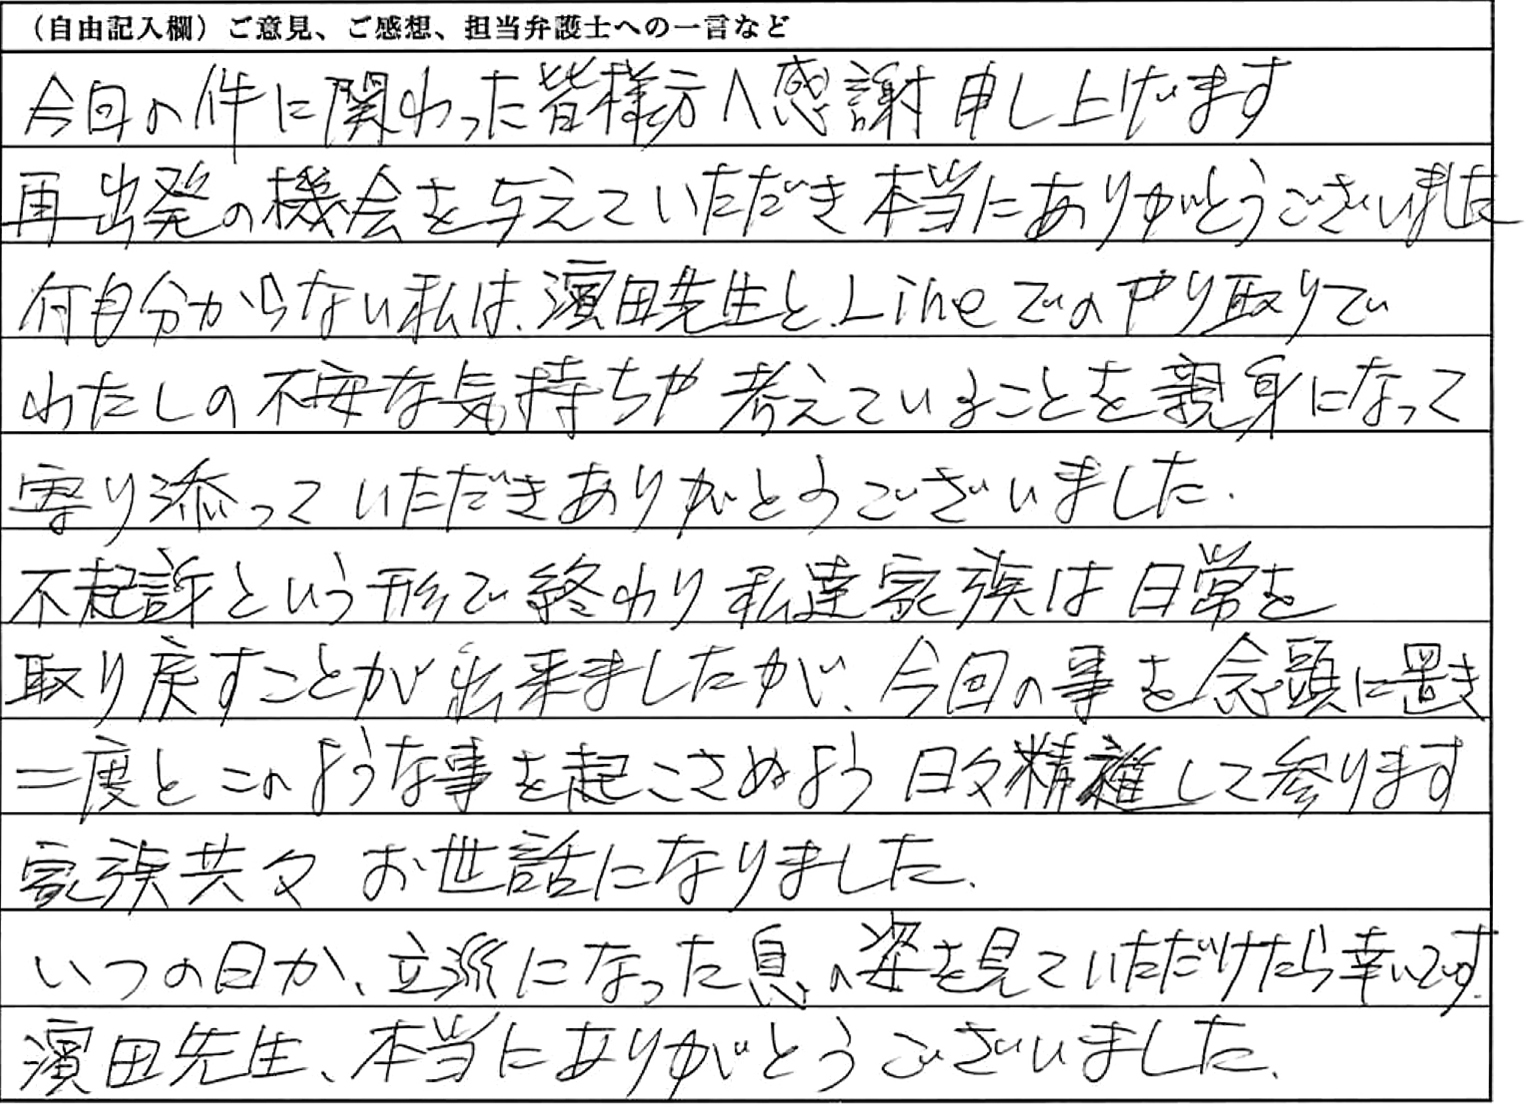 （自由記入欄）ご意見、ご感想、担当弁護士への一言など
今回の件に関わった皆様方へ感謝申し上げます
再出発の機会を与えていただき本当にありがとうございました
何自分からない私は、濱田先生とLineでのやり取りで
わたしの不安な気持ちや考えていることを親身になって
寄り添っていただきありがとうございました.
不起訴という形で終わり私達家族は日常を
取り戻すことが出来ましたが、今回の事を念頭に置き
二度とこのような事を起こさぬよう日々精進して参ります
家族共々お世話になりました.
いつの日か、立派になった息の姿を見ていただけたら幸いです.
濱田先生、本当にありがとうございました.